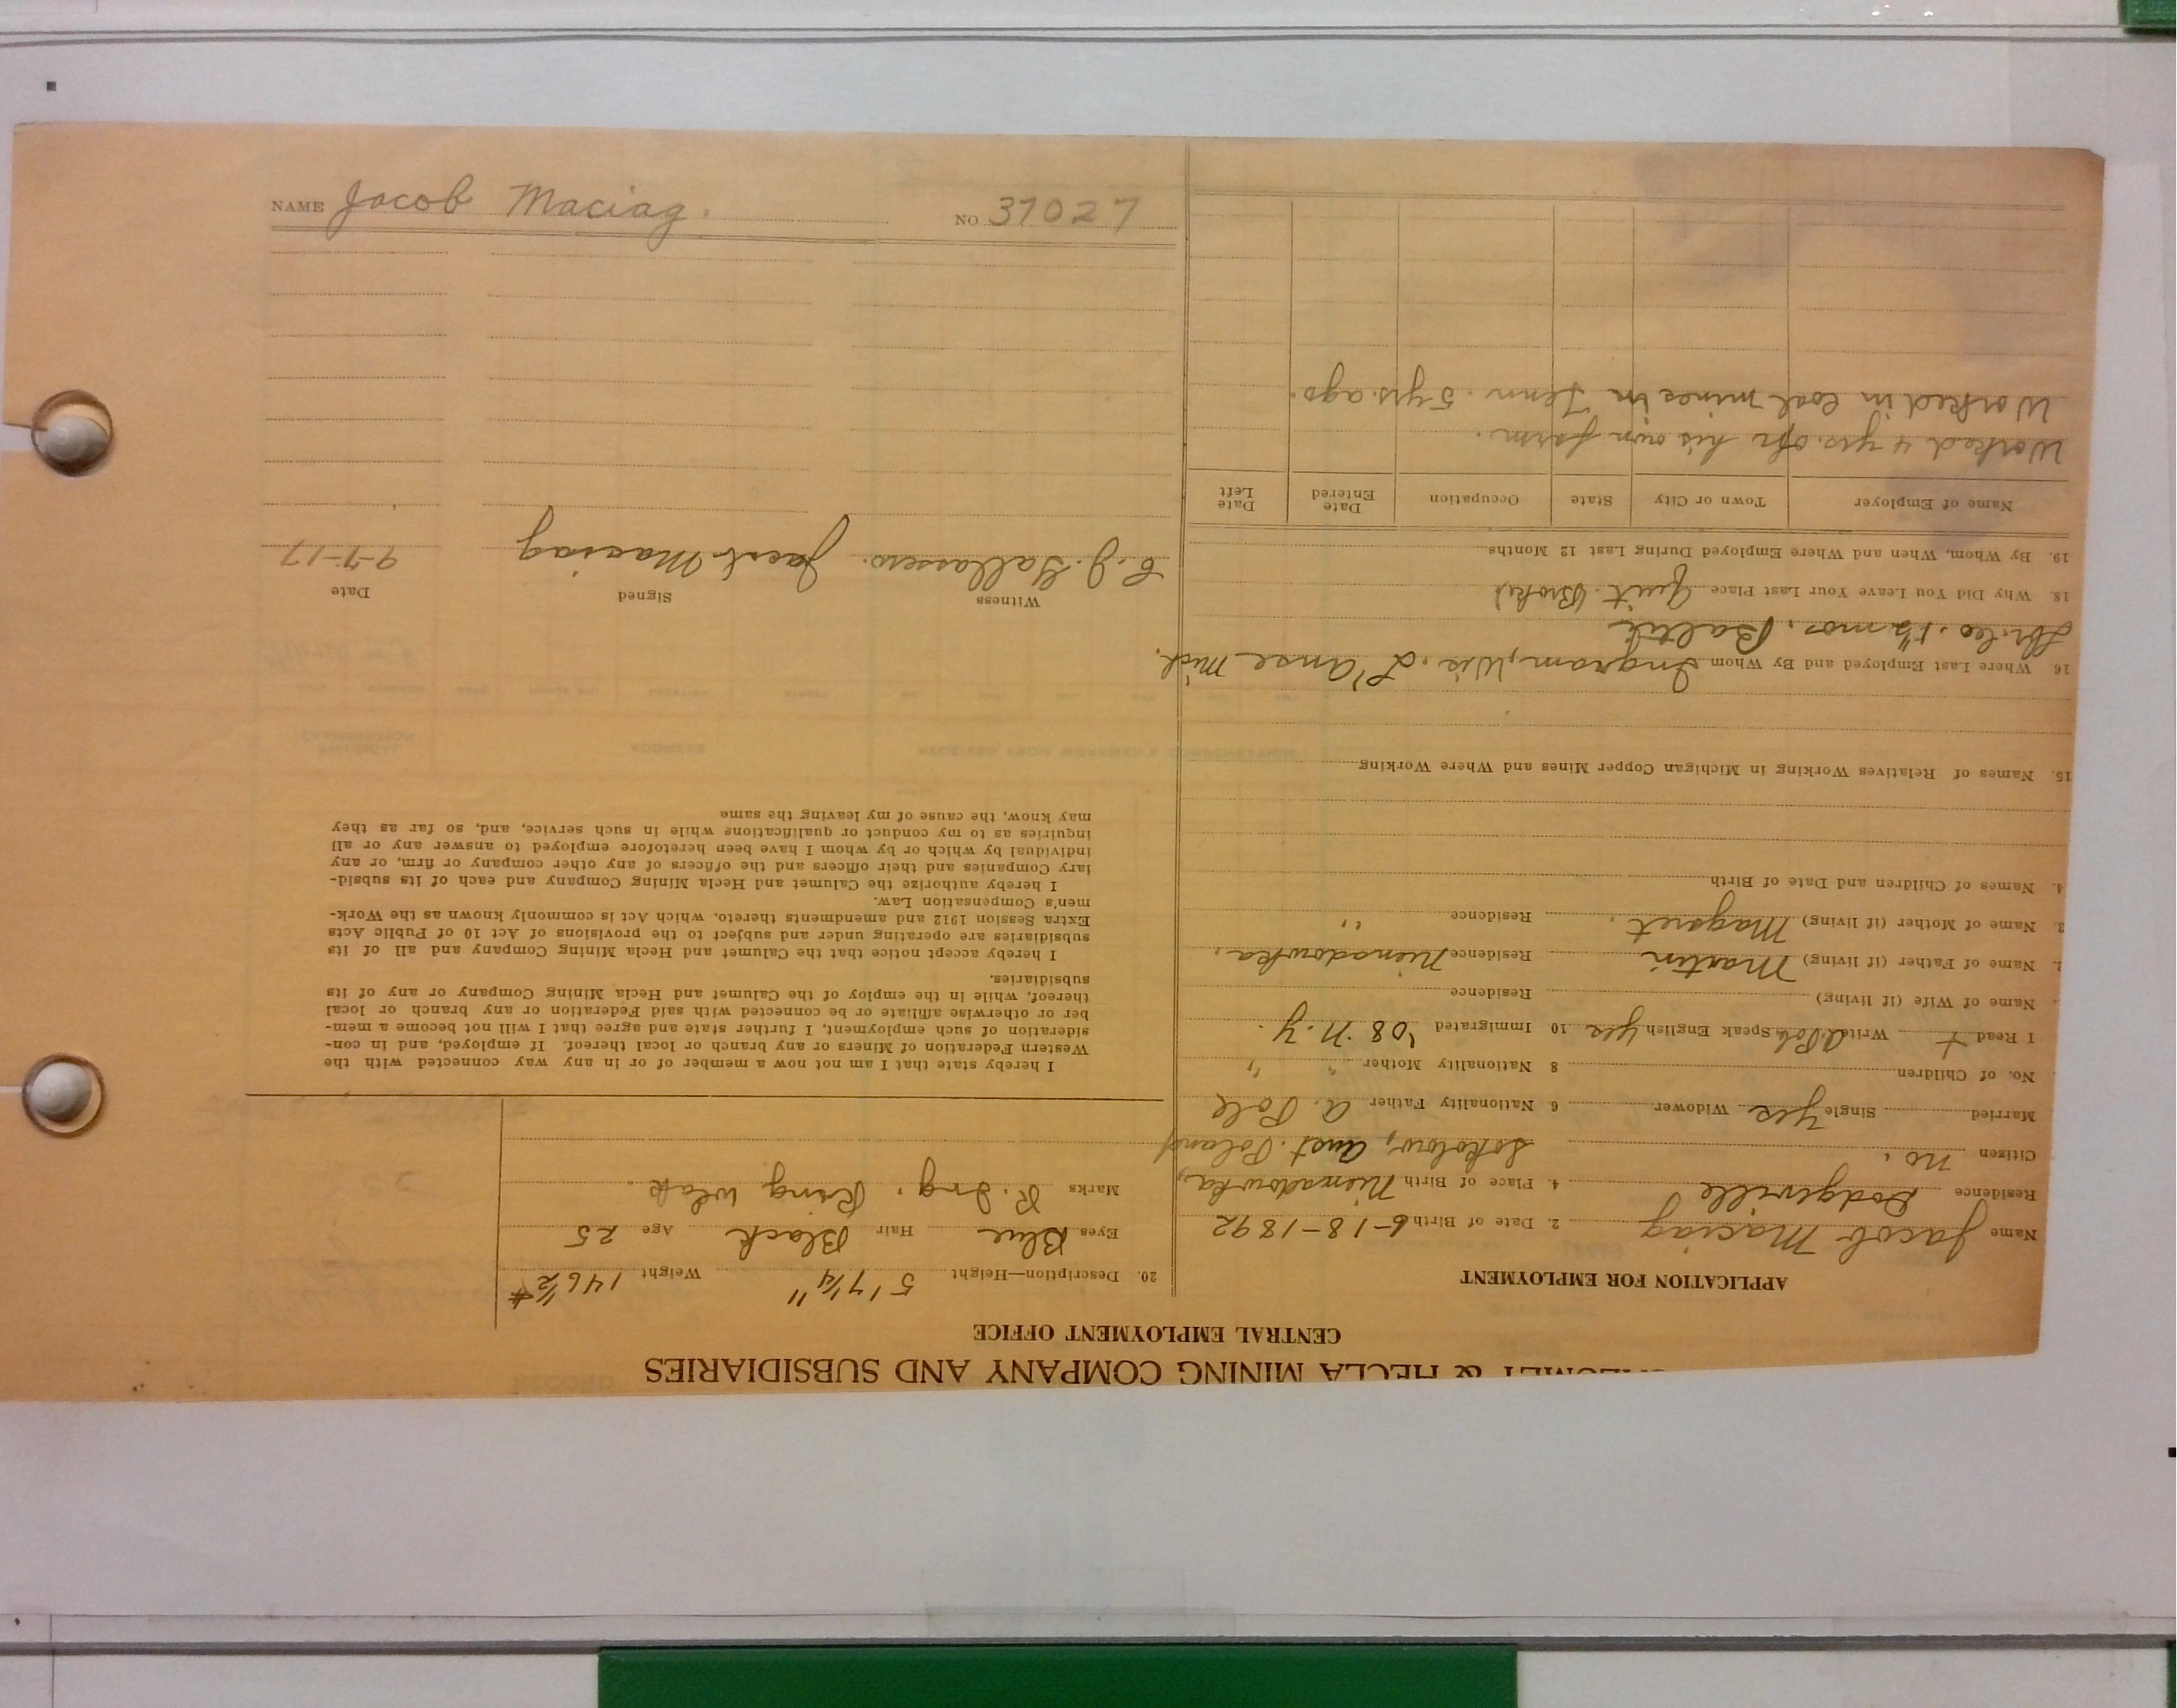 CALUMET & HECLA MINING COMPANY AND SUBSIDIARIES
CENTRAL EMPLOYMENT OFFICE
APPLICATION FOR EMPLOYMENT
Name Jacob Maciag 2. Date of Birth 6-18-1892
Residence Dodgeville 4. Place of Birth Nienadowka,
Citizen no. Sokolow, Aust. Poland
Married Single yes Widower 6 Nationality Father A. Pole
No. of Children 8 Nationality Mother " "
I Read + Write A Pole Speak English yes 10 Immigrated '08. N.Y.
Name of Wife (if living) Residence
2. Name of Father (if living) Martin Residence Nienadowka.
3. Name of Mother (if living) Magaret. Residence "
4. Names of Children and Date of Birth
15. Names of Relatives Working in Michigan Copper Mines and Where Working
16 Where Last Employed and By Whom Ingram, Wis. L'Anse Mich.
Lbr. Co. 1½ mos. Baltic
18. Why Did You Leave Your Last Place Quit (Broke)
19. By Whom, When and Where Employed During Last 12 Months
Name of Employer Town or City State Occupation Date Entered Date Left
Worked 4 yrs. on his own farm.
Worked in coal mines in Tenn. 5 yrs. ago.
20. Description—Height 5' 7¼" Weight 146½ #
Eyes Blue Hair Black Age 25
Marks R. Ing. Ring Weak.
I hereby state that I am not now a member of or in any way connected with the
Western Federation of Miners or any branch or local thereof. If employed, and in con-
sideration of such employment, I further state and agree that I will not become a mem-
ber or otherwise affiliate or be connected with said Federation or any branch or local
thereof, while in the employ of the Calumet and Hecla Mining Company or any of its
subsidiaries.
I hereby accept notice that the Calumet and Hecla Mining Company and all of its
subsidiaries are operating under and subject to the provisions of Act 10 of Public Acts
Extra Session 1912 and amendments thereto, which Act is commonly known as the Work-
men's Compensation Law.
I hereby authorize the Calumet and Hecla Mining Company and each of its subsid-
iary Companies and their officers and the officers of any other company or firm, or any
individual by which or by whom I have been heretofore employed to answer any or all
inquiries as to my conduct or qualifications while in such service, and, so far as they
may know, the cause of my leaving the same
Witness Signed Date
E. J. Jacob Maciag 9-7-17
NAME Jacob Maciag. NO 37027